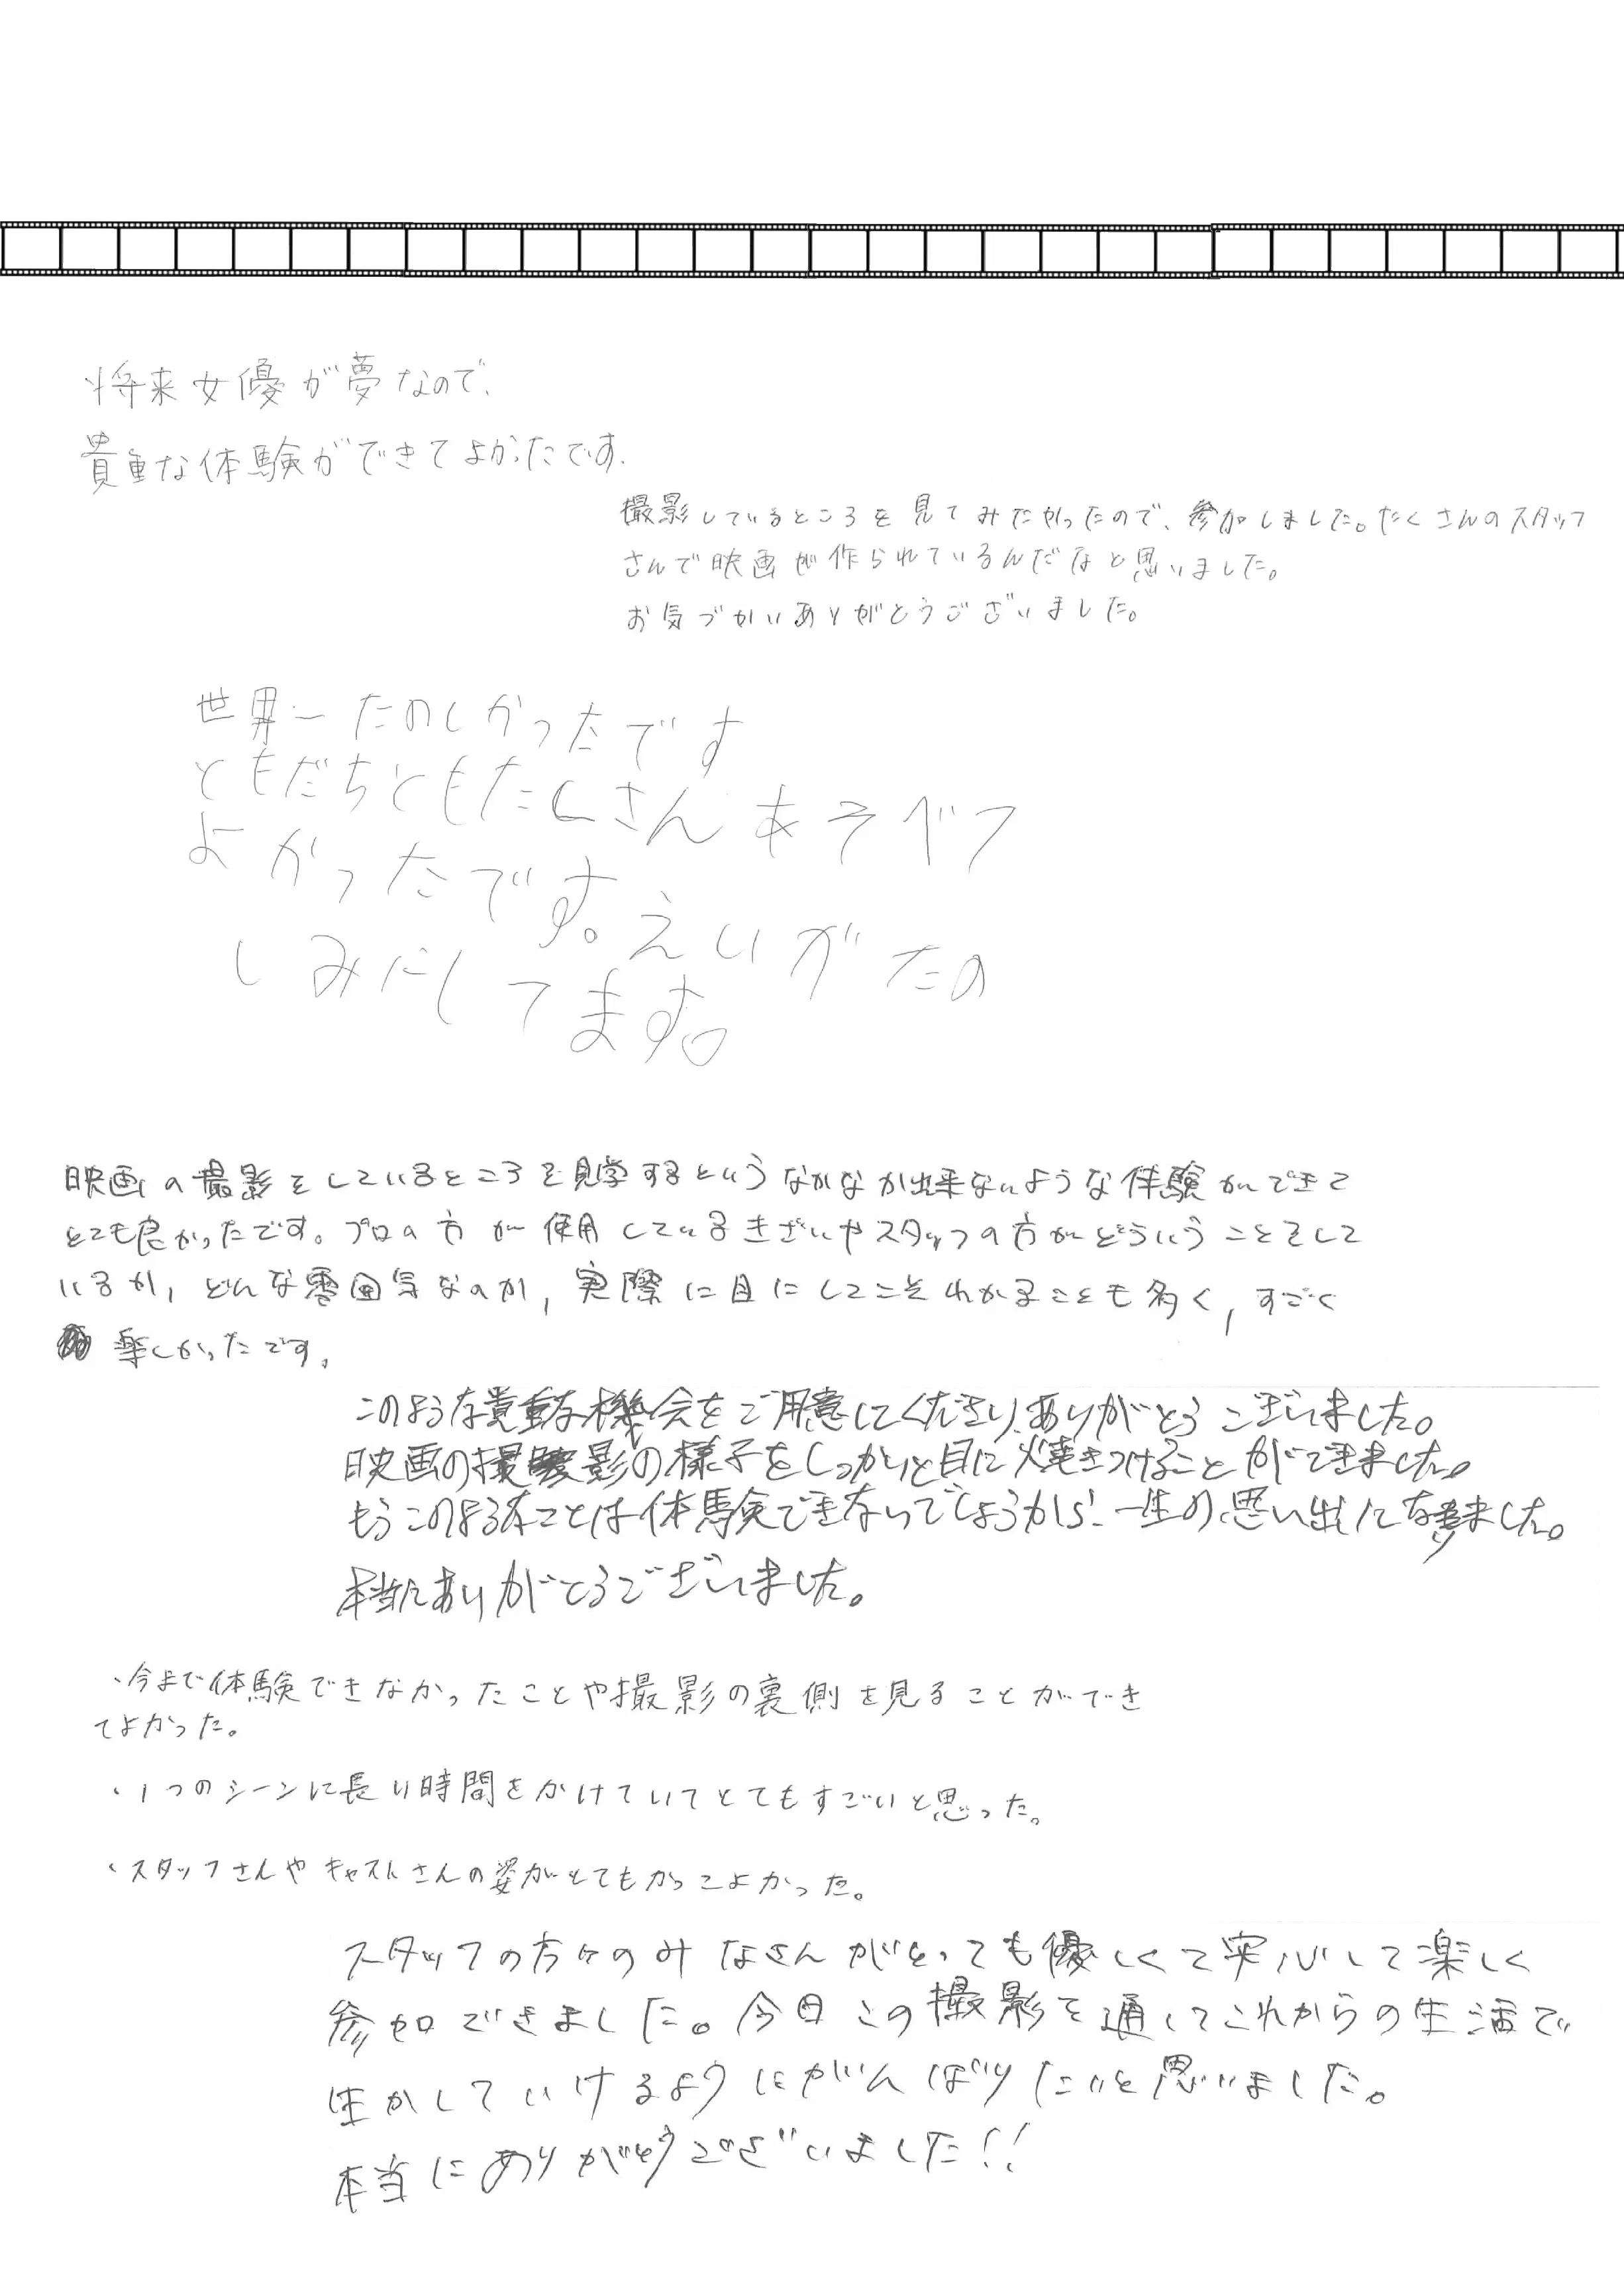 将来女優が夢なので、
貴重な体験ができてよかったです.
撮影しているところを見てみたかったので、参加しました。たくさんのスタッフ
さんで映画が作られているんだなと思いました。
お気づかいありがとうございました。
世界一たのしかったです
ともだちともたくさんあそべて
よかったです。えいがたの
しみにしてます。
映画の撮影をしているところを見学するというなかなか出来ないような体験ができて
とても良かったです。プロの方が使用しているきざいやスタッフの方がどういうことをして
いるか, どんな雰囲気なのか, 実際に目にしてこそわかることも多く, すごく
楽しかったです.
このような貴重な機会をご用意してくださり、ありがとうございました。
映画の撮影の様子をしっかりと目に焼きつけることができました。
もうこのようなことは体験できないでしょうから、一生の思い出になりました。
本当にありがとうございました。
・今まで体験できなかったことや撮影の裏側を見ることができ
てよかった。
・1つのシーンに長い時間をかけていてとてもすごいと思った。
・スタッフさんやキャストさんの姿がとてもかっこよかった。
スタッフの方々のみなさんがとっても優しくて安心して楽しく
参加できました。今日この撮影を通してこれからの生活で
生かしていけるようにがんばりたいと思いました。
本当にありがとうございました!!